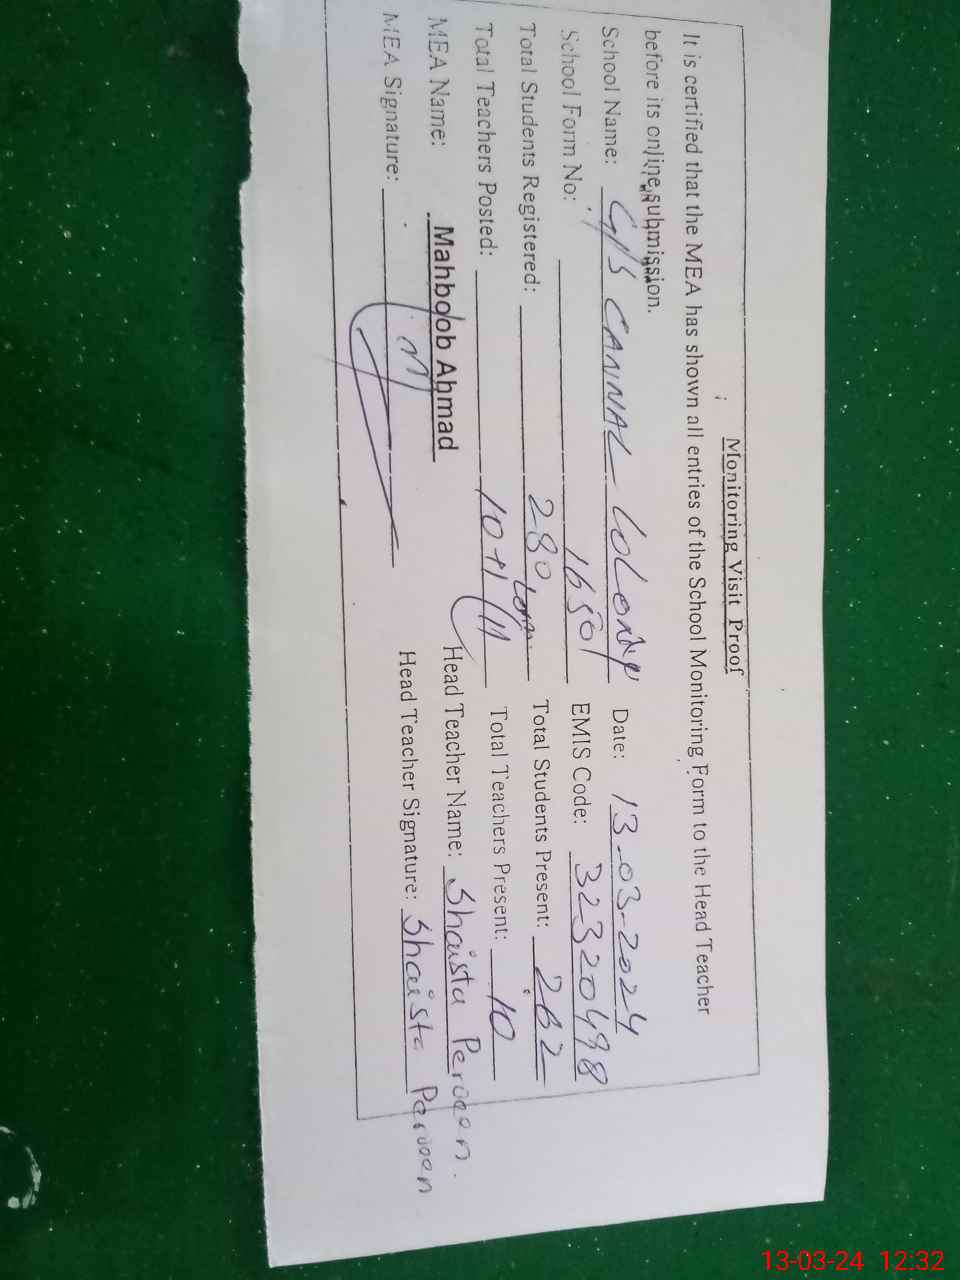 Monitoring Visit Proof
It is certified that the MEA has shown all entries of the School Monitoring Form to the Head Teacher
before its online submission.
School Name: G/S CANNAL COLONY Date: 13-03-2024
School Form No: 1650 EMIS Code: 32320498
Total Students Registered: 280 Total Students Present: 262
Total Teachers Posted: 10+1 (11 Total Teachers Present: 10
MEA Name: Mahboob Ahmad Head Teacher Name: Shaista Perveen.
MEA Signature: Head Teacher Signature: Shaista Perveen
13-03-24 12:32